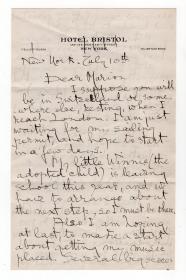 HOTEL BRISTOL
NEW YORK
New York. July 10th
Dear Marion
I suppose you will
be in Switzerland or some
where else resting when I
reach London. I am just
waiting for my sailing
permit and hope to start
in a few days.
My little Winnie (the
adopted child) is leaving
school this year, and we
have to arrange about
the next step, so I must be there.
Also I am hoping
at last to make a start
about getting my music
placed. Several big